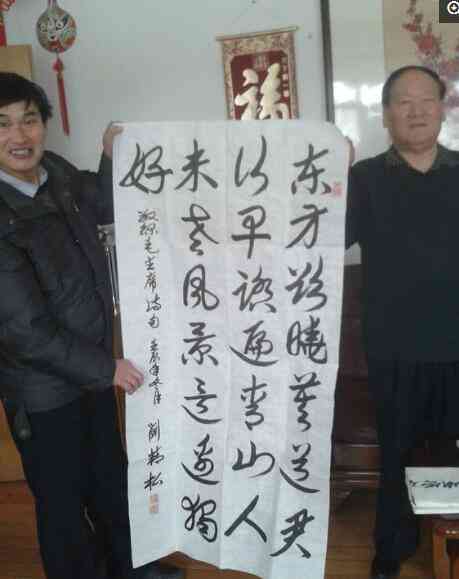 福
东方欲晓莫道君
行早踏遍青山人
未老风景这边独
好
敬录毛主席诗句 壬辰年冬月 刘精松